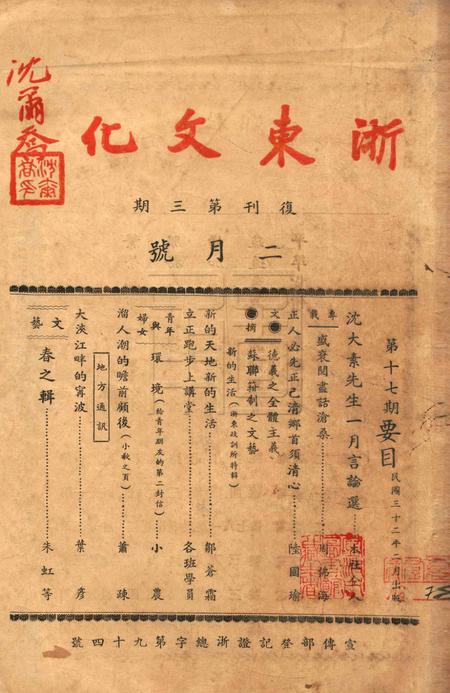 沈爾喬
浙東文化
復刊第三期
二月號
第十七期要目
民國三十二年二月出版
沈大素先生一月言論選……本社仝人
專載
盛衰閱盡話滄桑……周佛海
正人必先正己清鄉首須清心……陸國瑜
文摘
德義之全體主義
蘇聯箝制之文藝
新的生活(浙東政訓所特輯)
新的天地新的生活……鄒蒼霜
立正跑步上講堂……各班學員
青年與婦女
環境(給青年朋友的第二封信)……小農
溜人潮的瞻前顧後(小教之頁)……蕭疎
地方通訊
大淡江畔的寧波……葉彥
文藝
春之輯……朱虹等
宣傳部登記證浙總字第九十四號